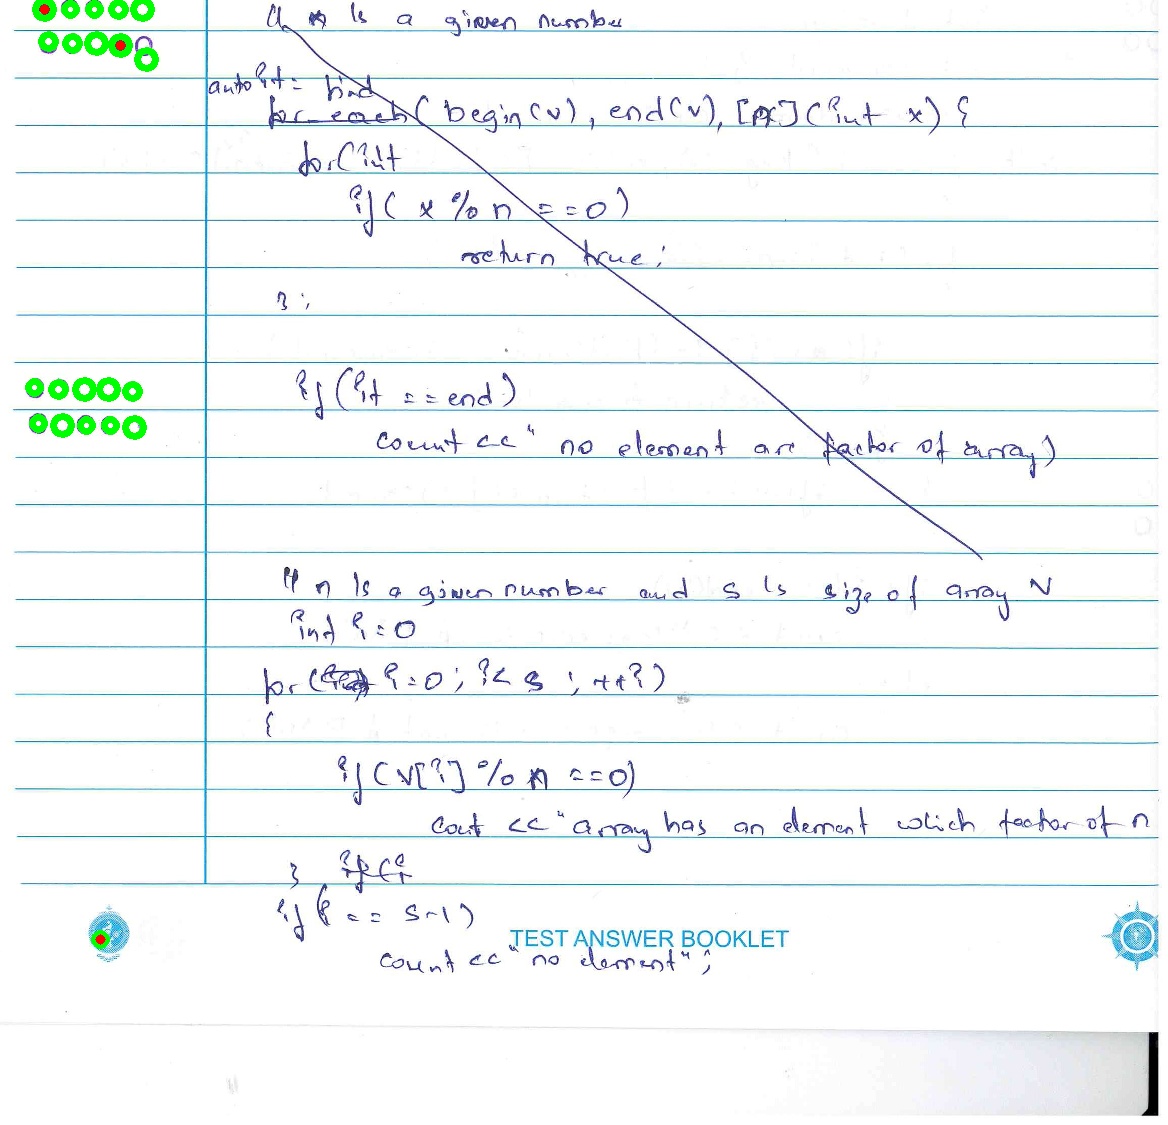 n is a given number
auto it = find
for each ( begin(v), end(v), [n] (int x) {
for(int
if( x % n == 0)
return true;
};
if (it == end)
count << " no element are factor of array)
// n is a given number and s is size of array v
int i=0
for( i=0 ; i< s ; ++i)
{
if (v[i] % n ==0)
cout << "array has an element which factor of n
} if (i
if (i == s-1)
TEST ANSWER BOOKLET
count << "no element";